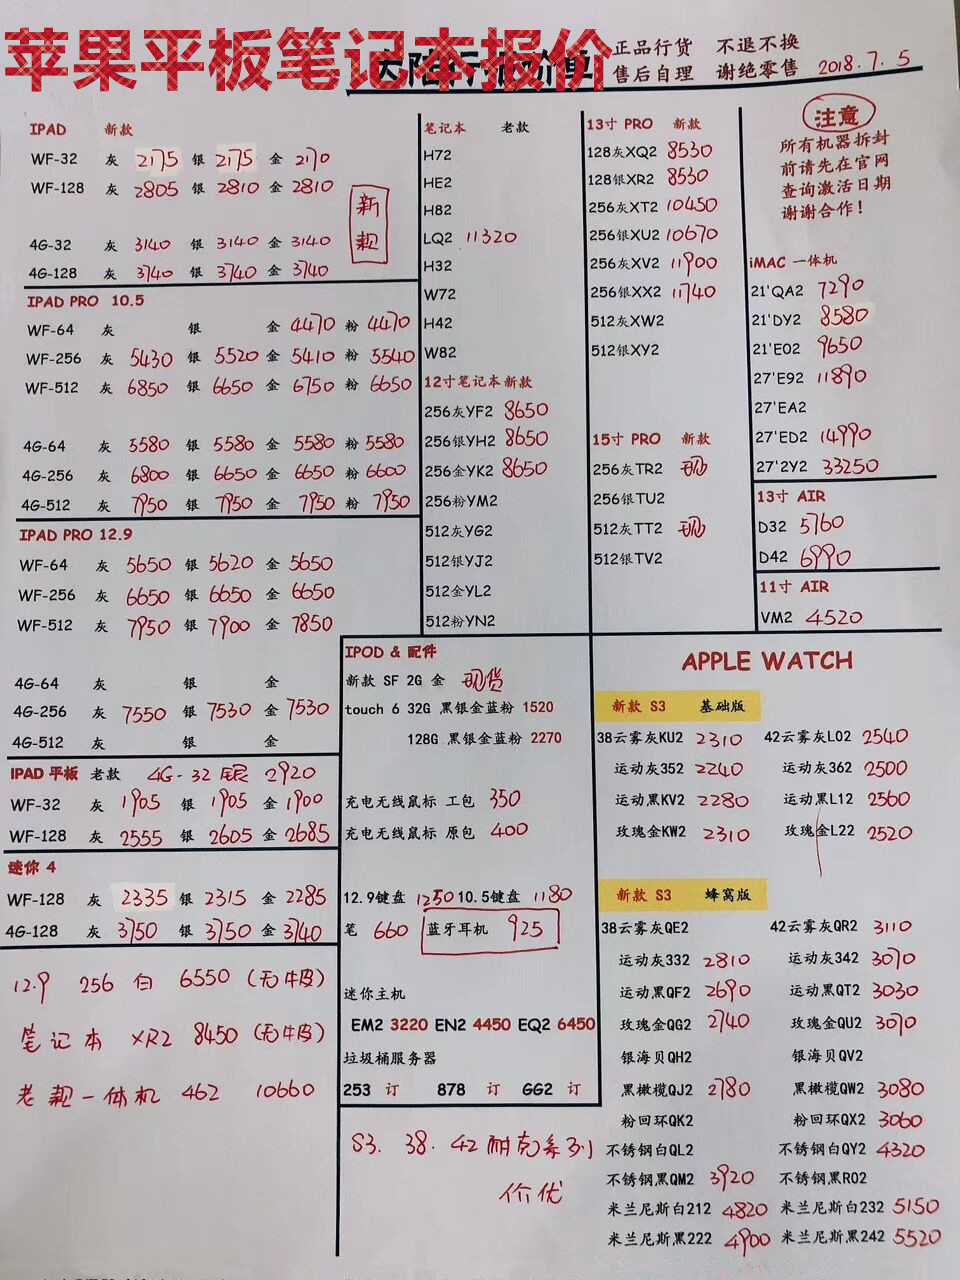 苹果平板笔记本报价
正品行货 不退不换
售后自理 谢绝零售 2018.7.5
IPAD 新款
WF-32 灰 2175 银 2175 金 2170
WF-128 灰 2805 银 2810 金 2810
新款
4G-32 灰 3140 银 3140 金 3140
4G-128 灰 3740 银 3740 金 3740
IPAD PRO 10.5
WF-64 灰 银 金 4470 粉 4470
WF-256 灰 5430 银 5520 金 5410 粉 5540
WF-512 灰 6850 银 6650 金 6750 粉 6650
4G-64 灰 5580 银 5580 金 5580 粉 5580
4G-256 灰 6800 银 6650 金 6650 粉 6600
4G-512 灰 7950 银 7950 金 7950 粉 7950
IPAD PRO 12.9
WF-64 灰 5650 银 5620 金 5650
WF-256 灰 6650 银 6650 金 6650
WF-512 灰 7950 银 7900 金 7850
4G-64 灰 银 金
4G-256 灰 7550 银 7530 金 7530
4G-512 灰 银 金
IPAD 平板 老款 4G-32 银 2920
WF-32 灰 1905 银 1905 金 1900
WF-128 灰 2555 银 2605 金 2685
迷你 4
WF-128 灰 2335 银 2315 金 2285
4G-128 灰 3750 银 3750 金 3740
12.9 256 白 6550 (无牛皮)
笔记本 XR2 8450 (无牛皮)
老款一体机 462 10660
笔记本 老款
H72
HE2
H82
LQ2 11320
H32
W72
H42
W82
12寸笔记本新款
256灰YF2 8650
256银YH2 8650
256金YK2 8650
256粉YM2
512灰YG2
512银YJ2
512金YL2
512粉YN2
13寸 PRO 新款
128灰XQ2 8530
128银XR2 8530
256灰XT2 10450
256银XU2 10670
256灰XV2 11900
256银XX2 11740
512灰XW2
512银XY2
15寸 PRO 新款
256灰TR2 现
256银TU2
512灰TT2 现
512银TV2
注意
所有机器拆封
前请先在官网
查询激活日期
谢谢合作！
iMAC 一体机
21'QA2 7290
21'DY2 8580
21'E02 9650
27'E92 11890
27'EA2
27'ED2 14990
27'2Y2 33250
13寸 AIR
D32 5760
D42 6990
11寸 AIR
VM2 4520
IPOD & 配件
新款 SF 2G 金 现货
touch 6 32G 黑银金蓝粉 1520
128G 黑银金蓝粉 2270
充电无线鼠标 工包 350
充电无线鼠标 原包 400
12.9键盘 1250 10.5键盘 1180
笔 660 蓝牙耳机 925
迷你主机
EM2 3220 EN2 4450 EQ2 6450
垃圾桶服务器
253 订 878 订 GG2 订
S3. 38. 42 耐克系列
价优
APPLE WATCH
新款 S3 基础版
38云雾灰KU2 2310 42云雾灰L02 2540
运动灰352 2240 运动灰362 2500
运动黑KV2 2280 运动黑L12 2560
玫瑰金KW2 2310 玫瑰金L22 2520
新款 S3 蜂窝版
38云雾灰QE2 42云雾灰QR2 3110
运动灰332 2810 运动灰342 3070
运动黑QF2 2690 运动黑QT2 3030
玫瑰金QG2 2740 玫瑰金QU2 3070
银海贝QH2 银海贝QV2
黑橄榄QJ2 2780 黑橄榄QW2 3080
粉回环QK2 粉回环QX2 3060
不锈钢白QL2 不锈钢白QY2 4320
不锈钢黑QM2 3920 不锈钢黑R02
米兰尼斯白212 4820 米兰尼斯白232 5150
米兰尼斯黑222 4900 米兰尼斯黑242 5520